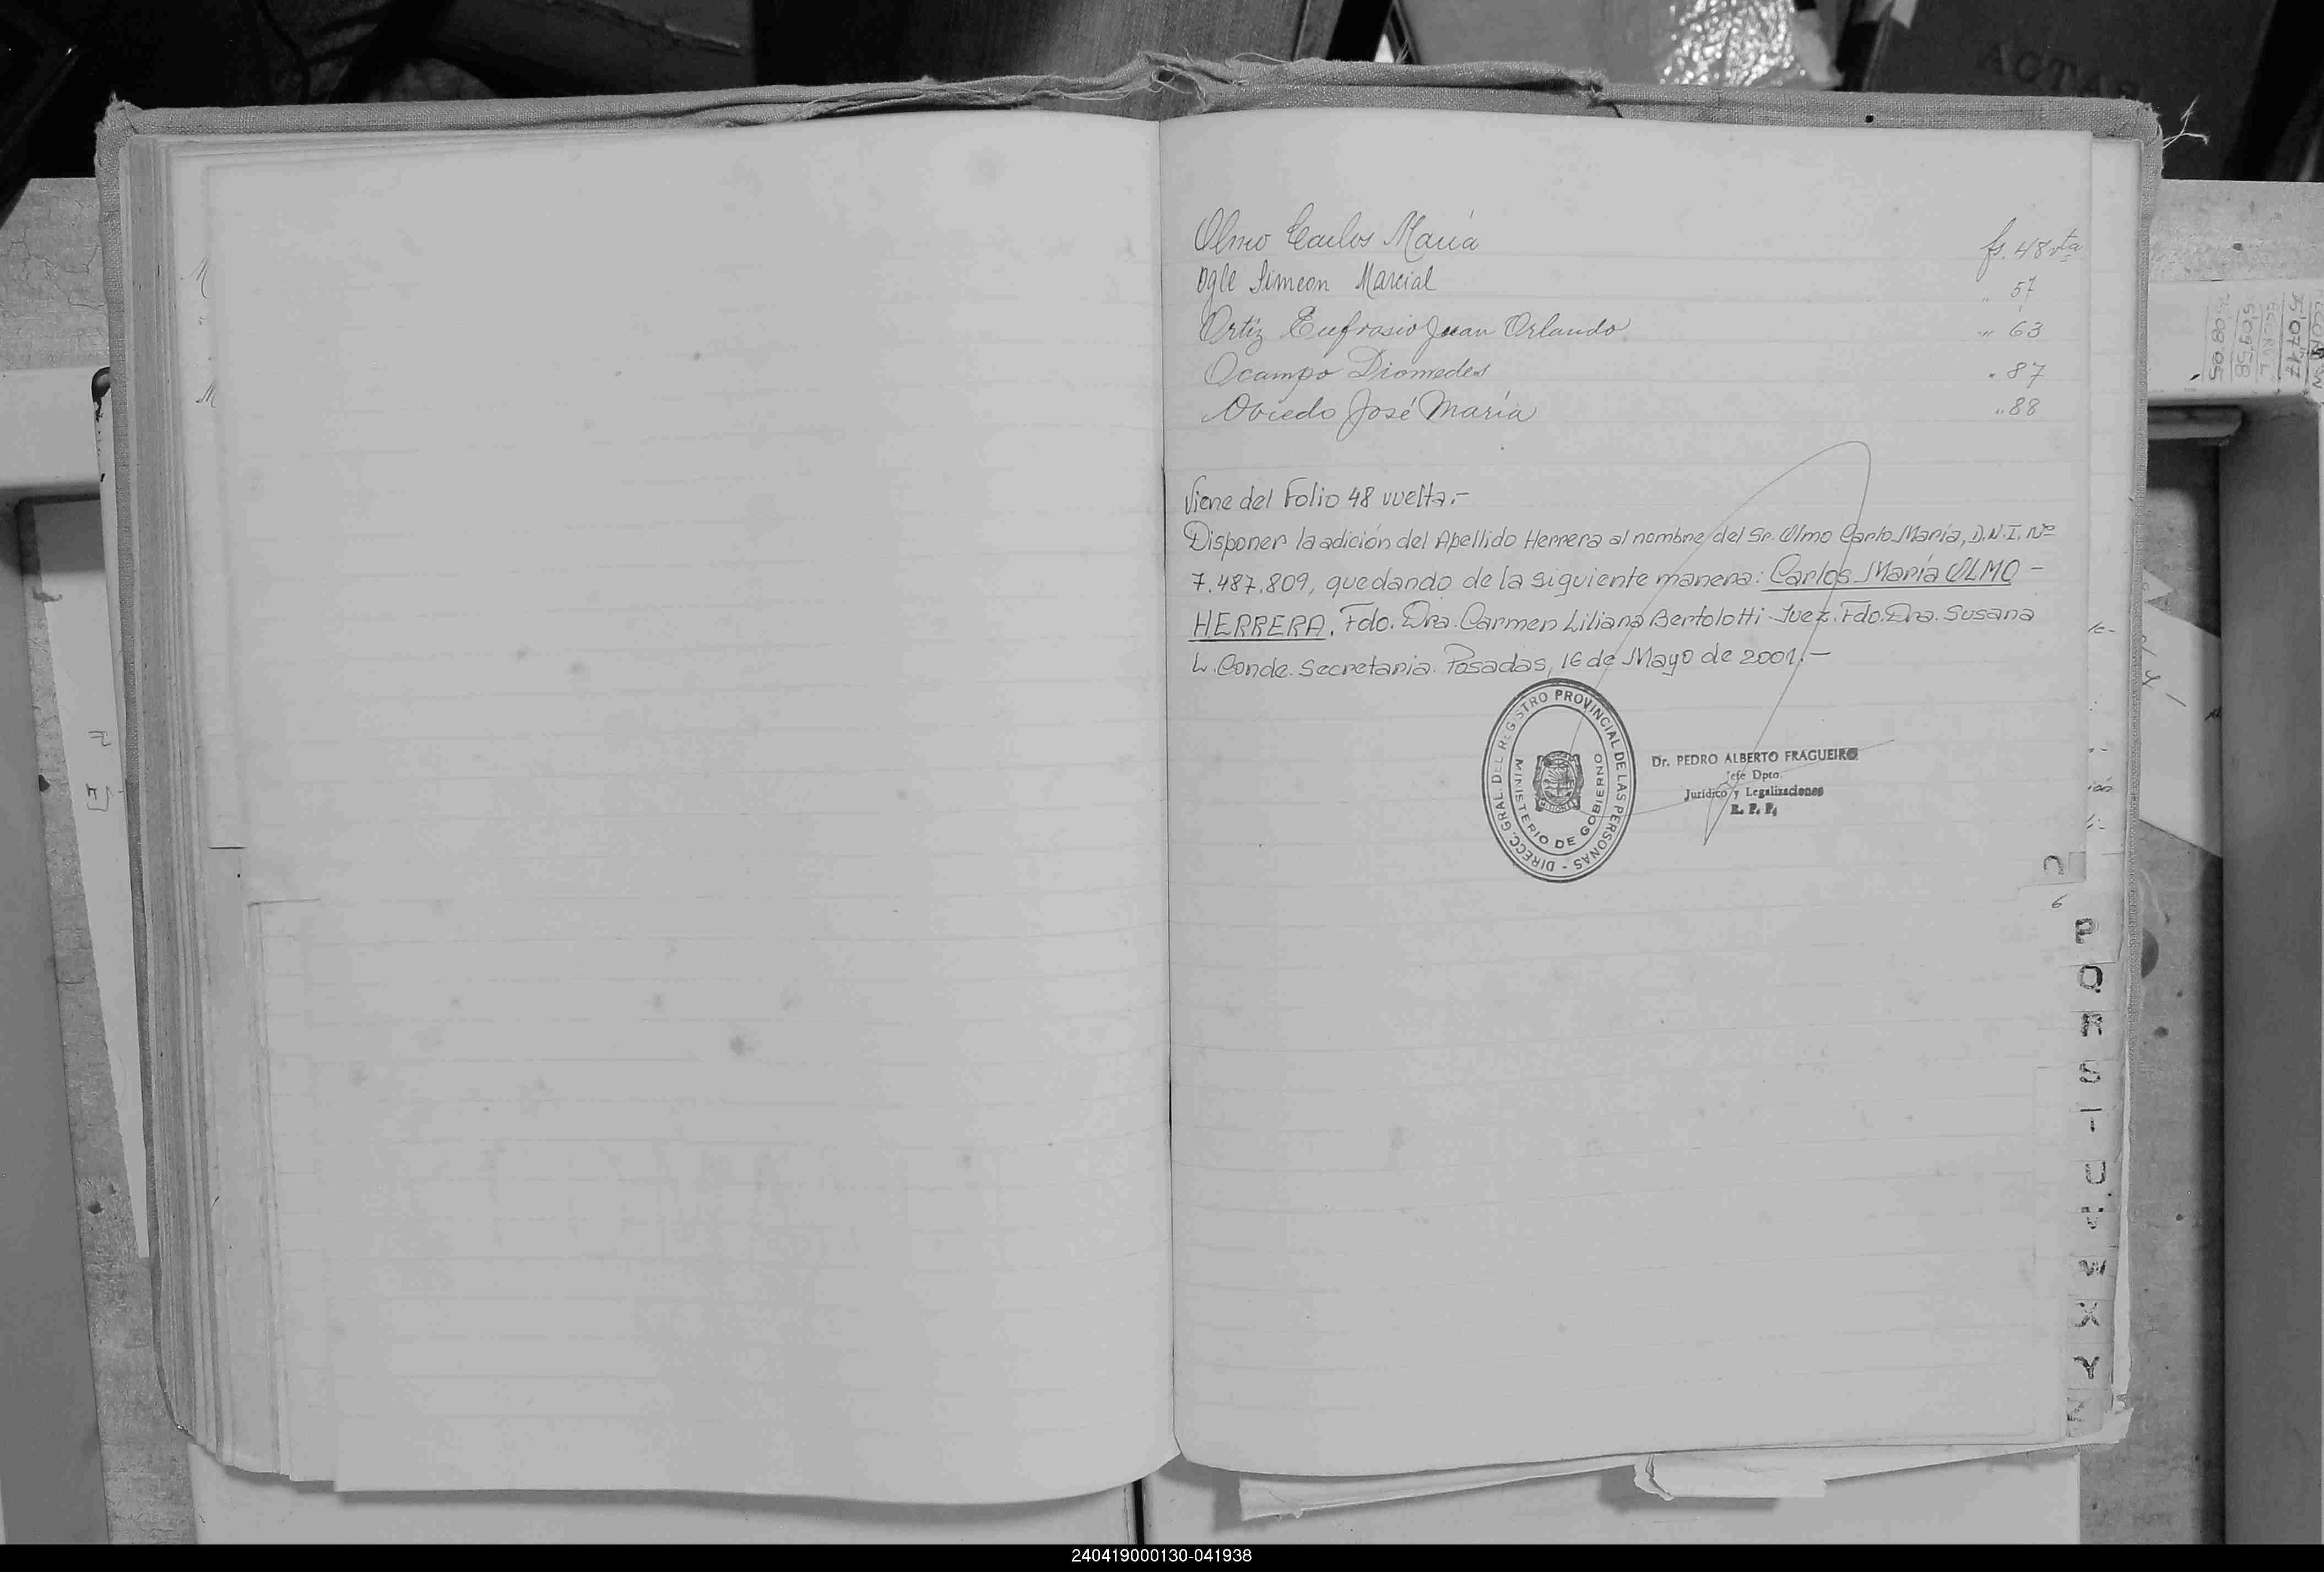 Olmo Carlos María fs. 48 vta
Ogle Simeon Marcial " 57
Ortíz Eufrasio Juan Orlando " 63
Ocampo Diomedes " 87
Oviedo José María " 88
Viene del Folio 48 vuelta.-
Disponer la adición del Apellido Herrera al nombre del Sr. Olmo Carlo María, D.N.I. Nº
7.487.809, quedando de la siguiente manera: Carlos María OLMO -
HERRERA. Fdo. Dra. Carmen Liliana Bertolotti - Juez. Fdo. Dra. Susana
L. Conde. Secretaria. Posadas, 16 de Mayo de 2001.-
DIRECC. GRAL. DEL REGISTRO PROVINCIAL DE LAS PERSONAS -
MINISTERIO DE GOBIERNO
Dr. PEDRO ALBERTO FRAGUEIRO
Jefe Dpto.
Jurídico y Legalizaciones
R. P. P.
P
Q
R
S
T
U
V
W
X
Y
Z
240419000130-041938